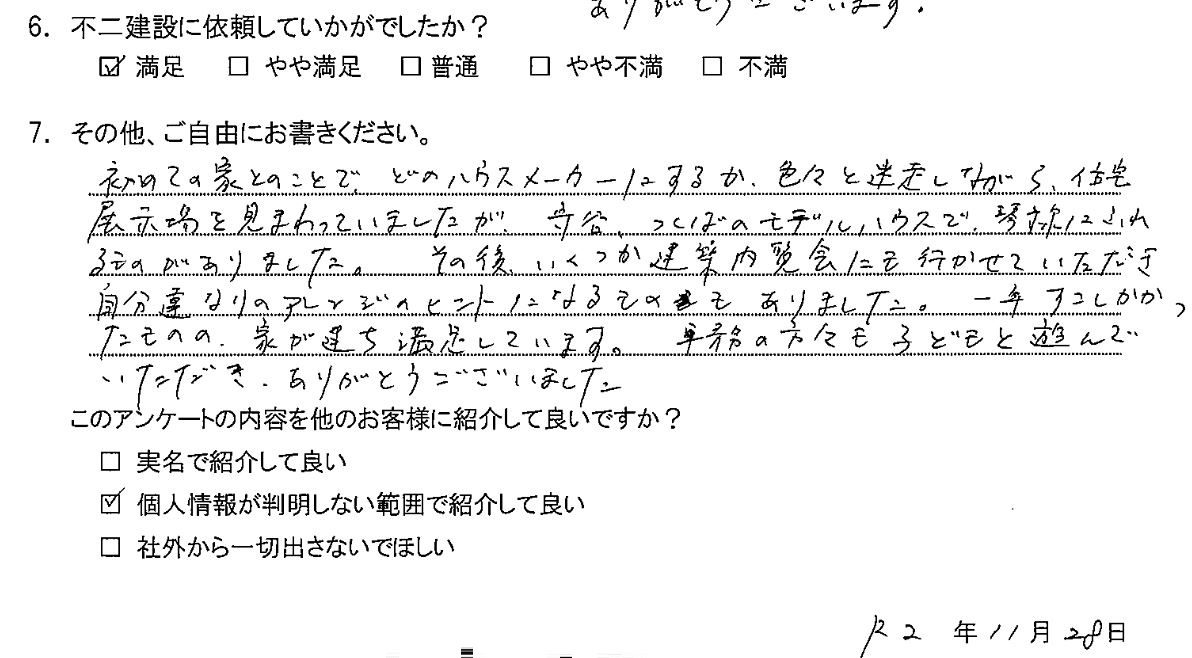 ありがとうございます。
6. 不二建設に依頼していかがでしたか？
☑ 満足 □ やや満足 □ 普通 □ やや不満 □ 不満
7. その他、ご自由にお書きください。
初めての家とのことで、どのハウスメーカーにするか、色々と迷走しながら、住宅
展示場を見まわっていましたが、守谷、つくばのモデルハウスで、琴線にふれ
るものがありました。 その後、いくつか建築内覧会にも行かせていただき
自分達なりのアレンジのヒントになるものもありました。一年すこしかかっ
たものの、家が建ち満足しています。 事務の方々も子どもと遊んで
いただき、ありがとうございました
このアンケートの内容を他のお客様に紹介して良いですか？
□ 実名で紹介して良い
☑ 個人情報が判明しない範囲で紹介して良い
□ 社外から一切出さないでほしい
R2 年 11月 28日